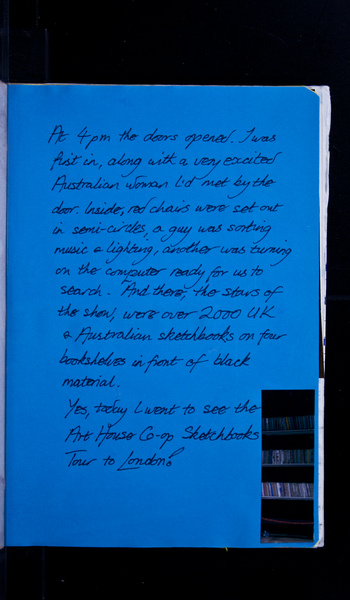 At 4pm the doors opened. I was
first in, along with a very excited
Australian woman I'd met by the
door. Inside, red chairs were set out
in semi-circles, a guy was sorting
music & lighting, another was turning
on the computer ready for us to
search. And there, the stars of
the show, were over 2000 UK
& Australian sketchbooks on four
bookshelves in front of black
material.
Yes, today I went to see the
Art House Co-op Sketchbooks
Tour to London!